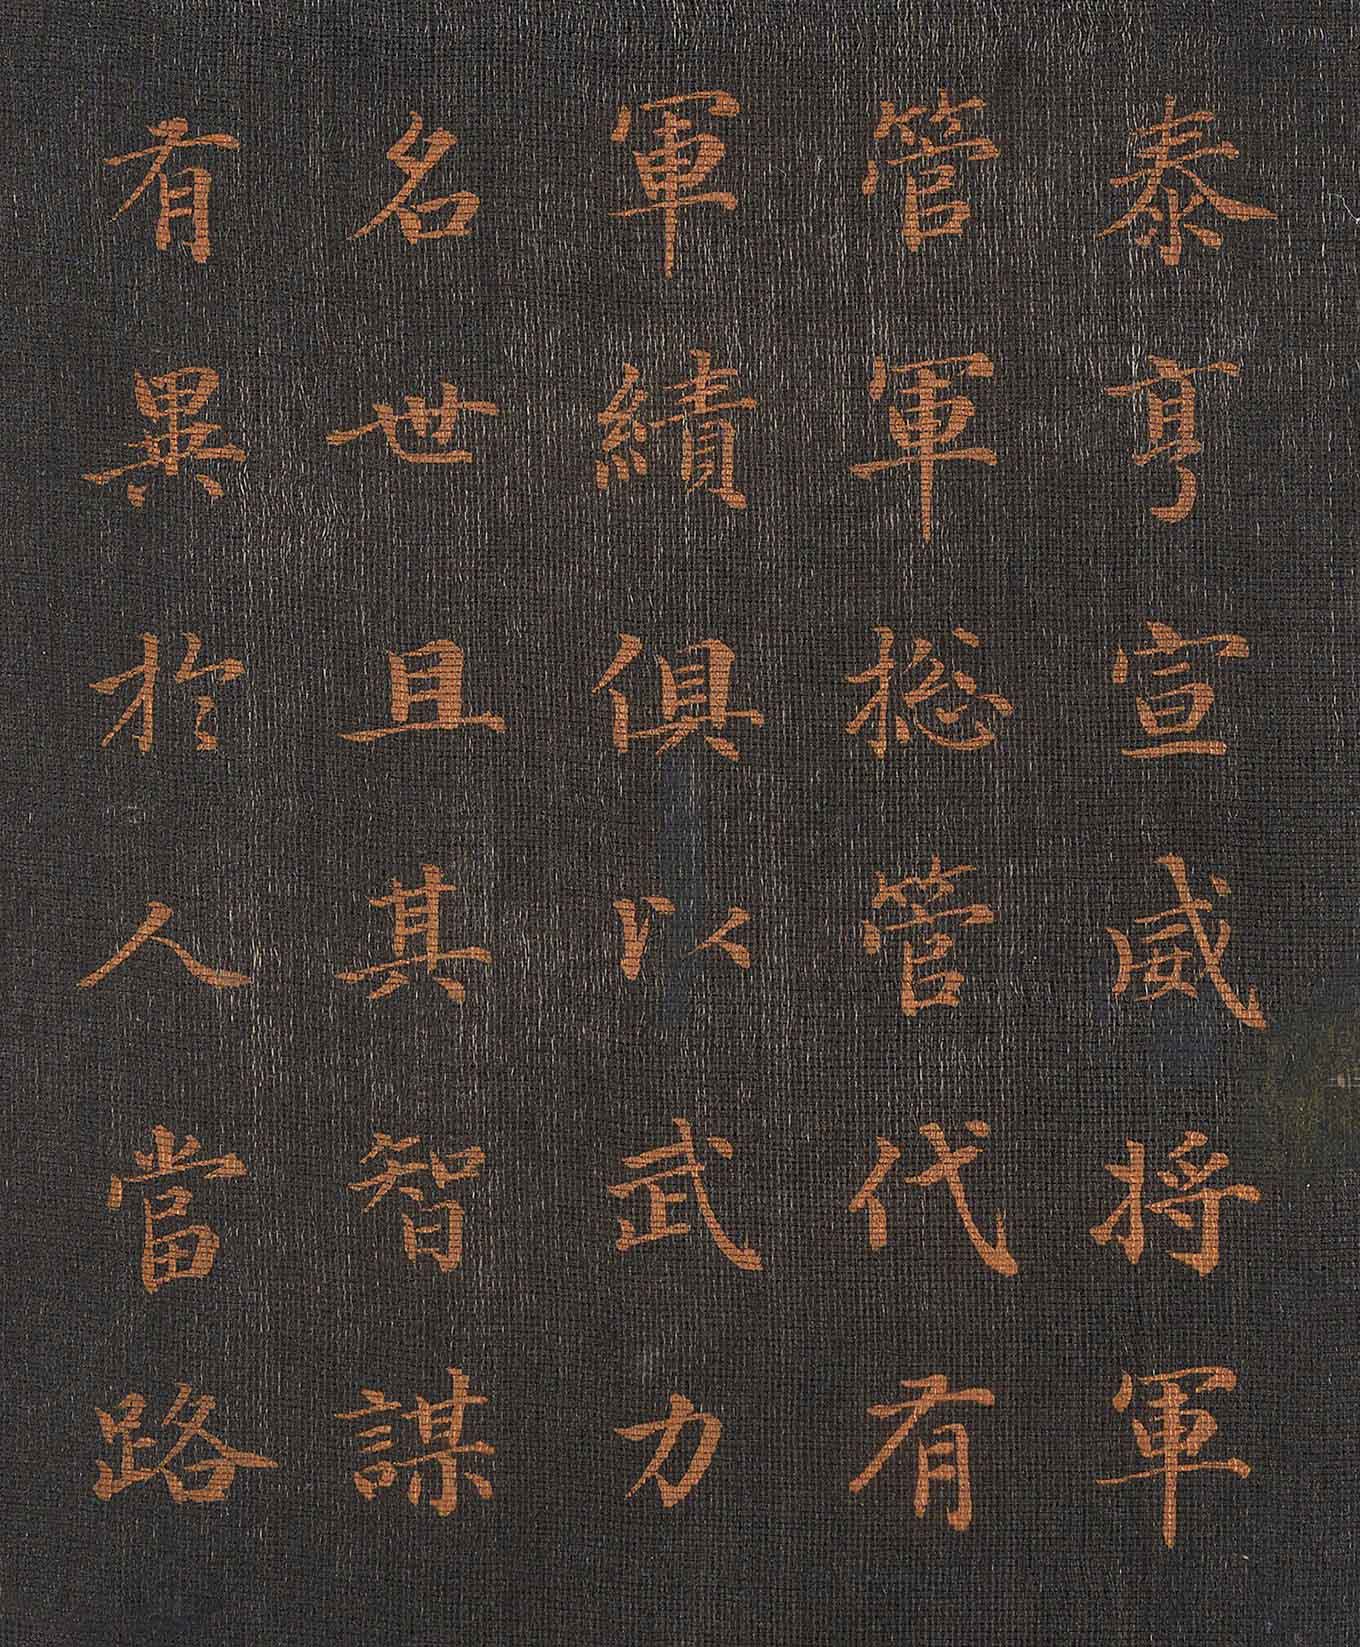 泰亨宣威将軍
管軍揔管代有
軍績俱以武力
名世且其智謀
有異於人當路